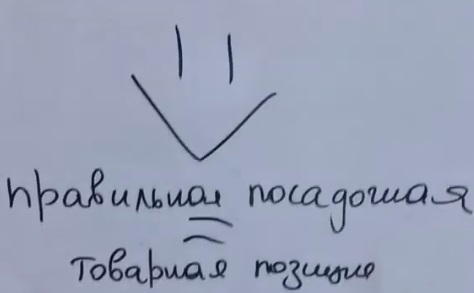 правильная посадочная
=
товарная позиция